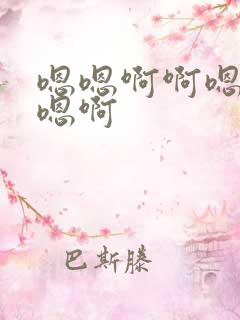 嗯嗯啊啊嗯
嗯啊
巴斯滕